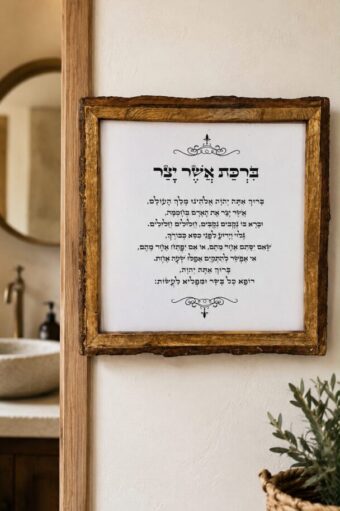 בִּרְכַּת אֲשֶׁר יָצַר
בָּרוּךְ אַתָּה יְהֹוָה אֱלֹהֵינוּ מֶלֶךְ הָעוֹלָם,
אֲשֶׁר יָצַר אֶת הָאָדָם בְּחָכְמָה,
וּבָרָא בוֹ נְקָבִים נְקָבִים, חֲלוּלִים חֲלוּלִים.
גָּלוּי וְיָדוּעַ לִפְנֵי כִסֵּא כְבוֹדֶךָ,
שֶׁאִם יִסָּתֵם אֶחָד מֵהֶם, אוֹ אִם יִפָּתֵחַ אֶחָד מֵהֶם,
אִי אֶפְשַׁר לְהִתְקַיֵּם אֲפִלּוּ שָׁעָה אֶחָת.
בָּרוּךְ אַתָּה יְהֹוָה,
רוֹפֵא כָל בָּשָׂר וּמַפְלִיא לַעֲשׂוֹת: